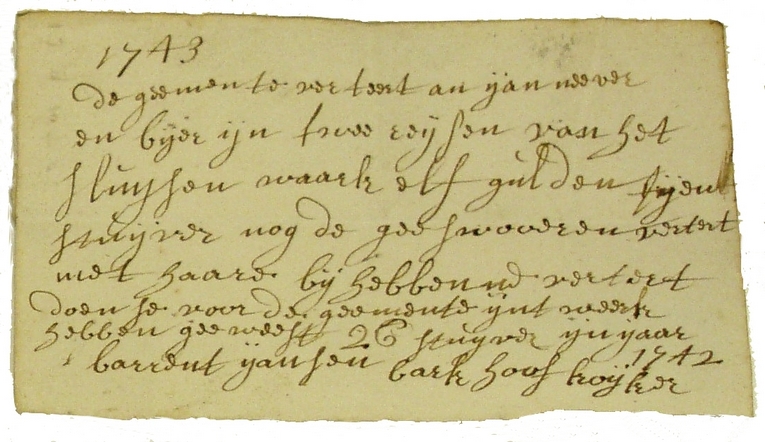 1743
de geemente verteert an yan neever
en byer yn twee reysen van het
sluyssen waark elf gulden tyen
stuyver nog de geeswooren vertert
met haare by hebbenne vertert
doen se voor de geemente ynt weerk
hebben geeweest 26 stuyver yn yaar
1742
barrent yansen bark hoof koyker